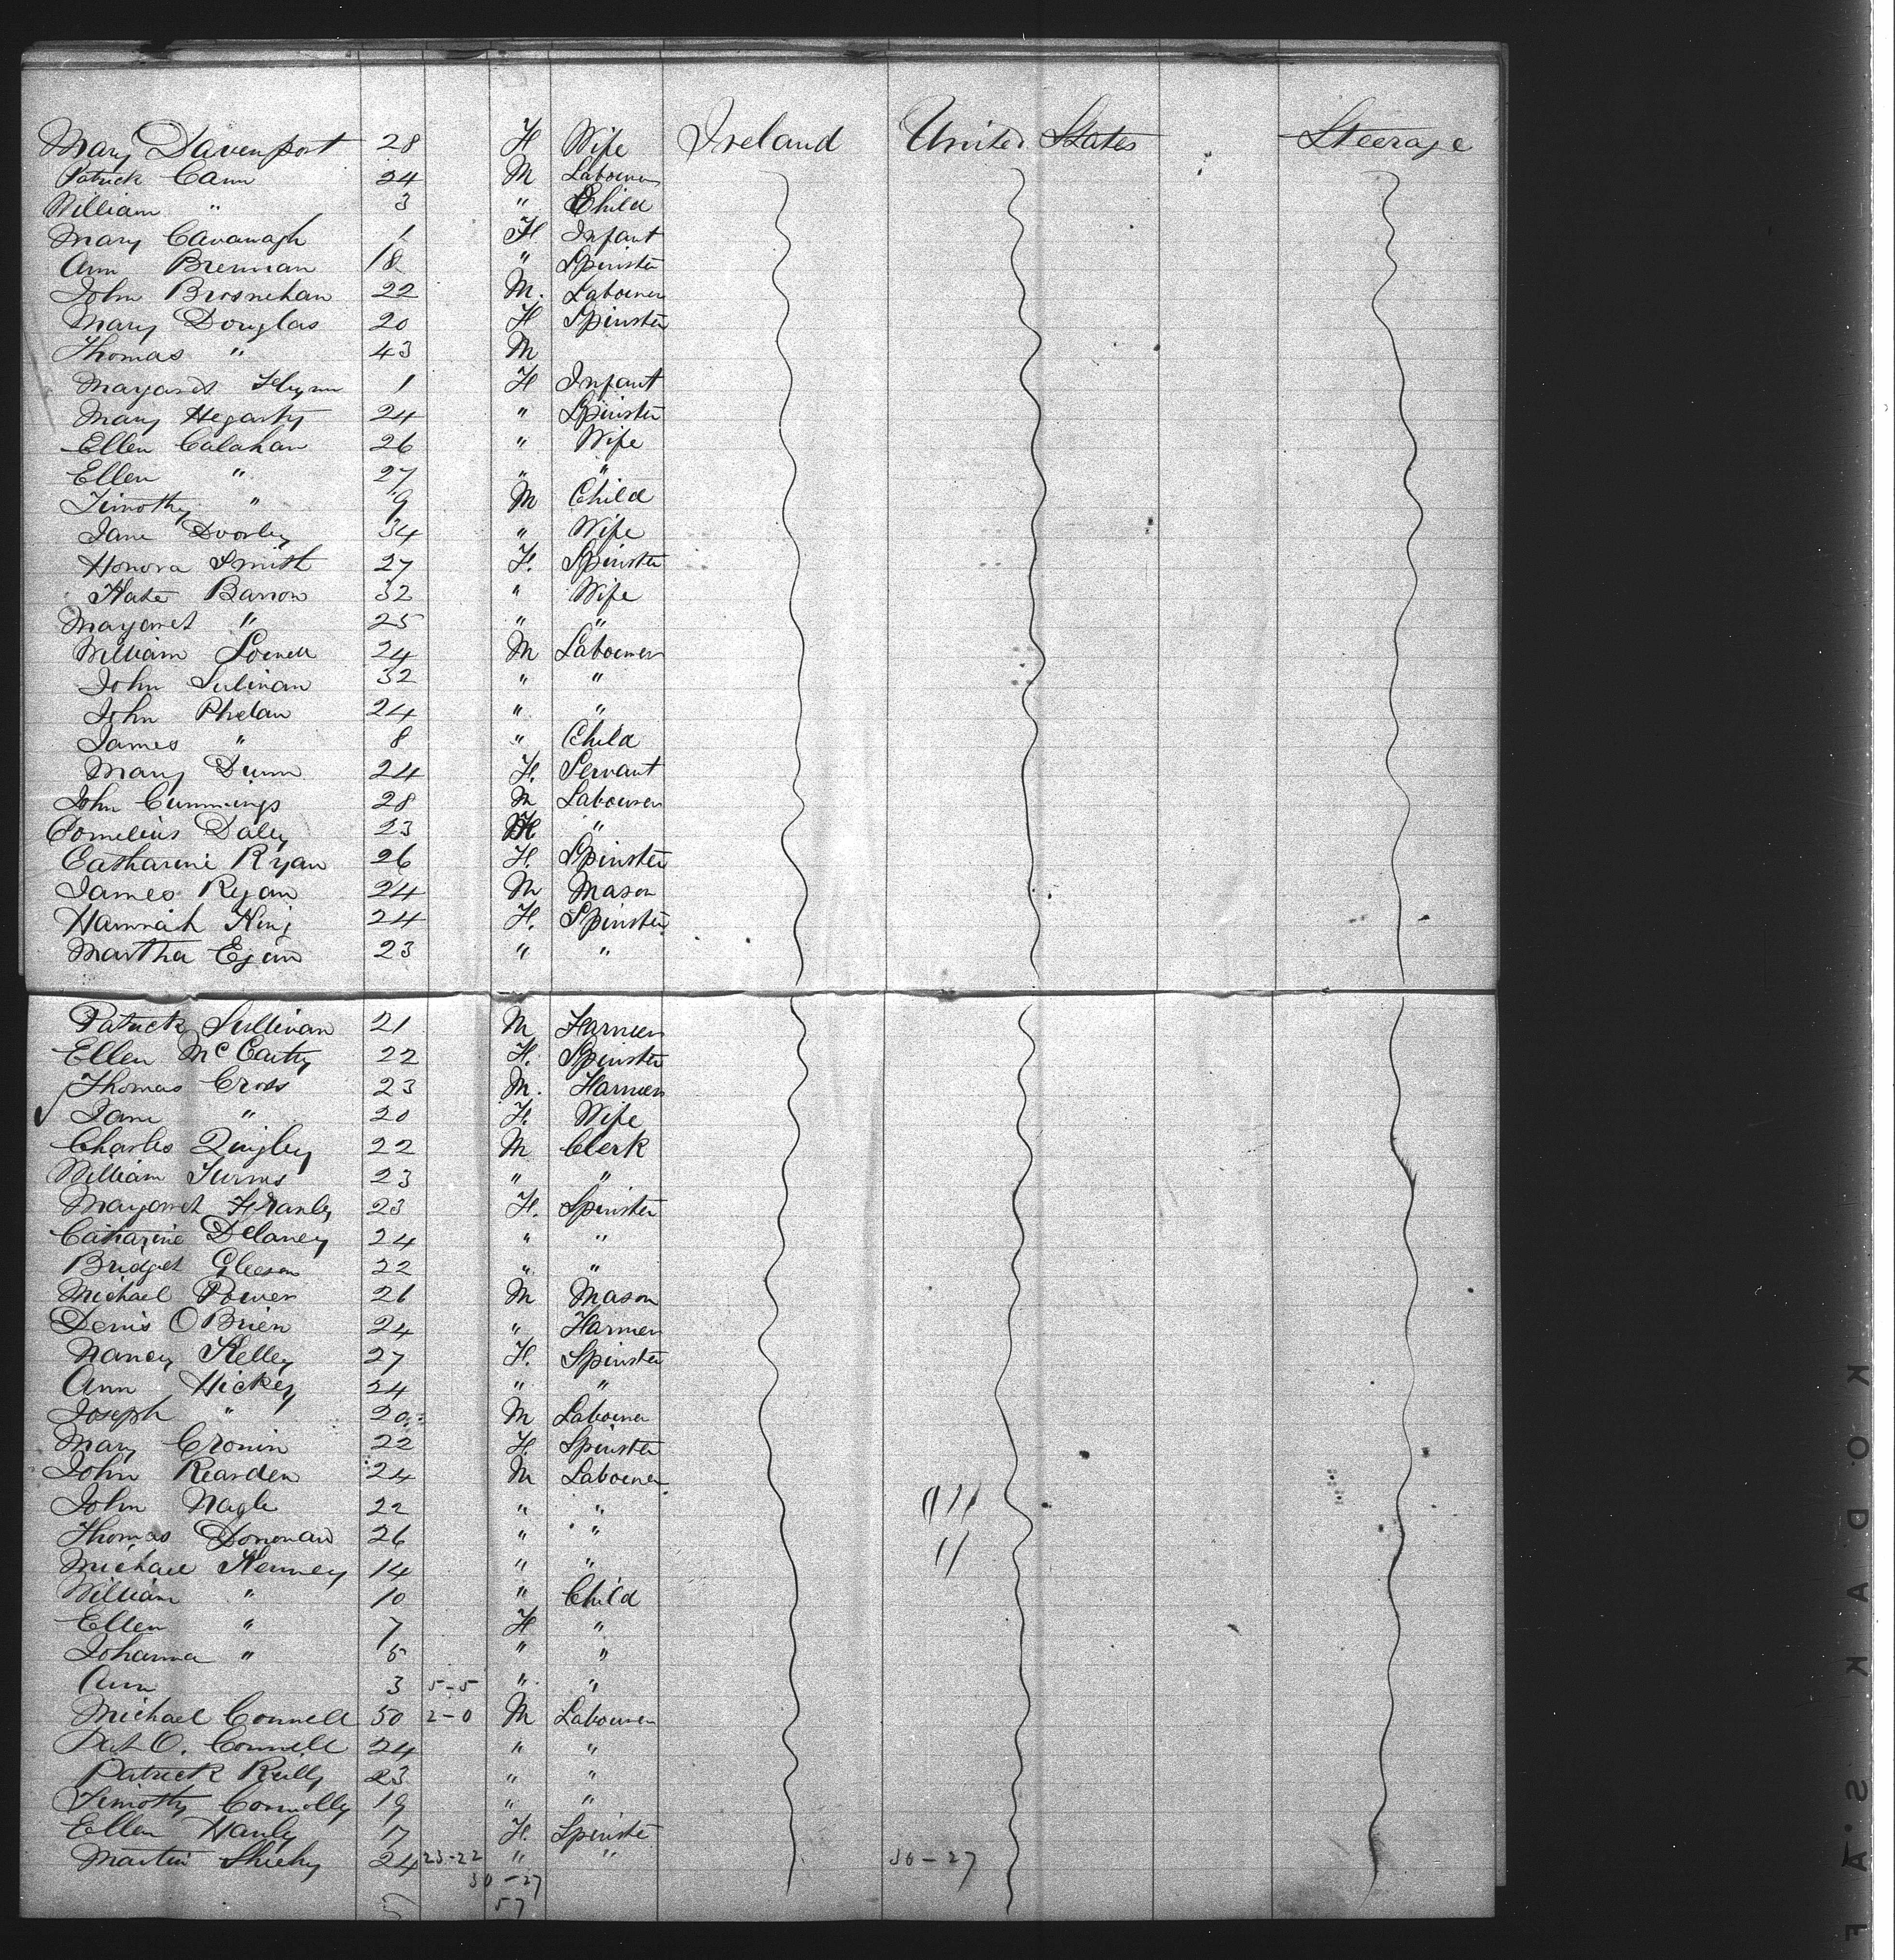 Mary Davenport 28 F Wife Ireland United States Steerage
Patrick Cann 24 M Labourer
William " 3 " Child
Mary Cavanagh 1 F Infant
Ann Brennan 18 " Spinster
John Brosnehan 22 M. Labourer
Mary Douglas 20 F Spinster
Thomas " 43 M
Margaret Flynn 1 F Infant
Mary Hegarty 24 " Spinster
Ellen Calahan 26 " Wife
Ellen " 27 " "
Timothy " 9 M Child
Jane Doorley 34 " Wife
Honora Smith 27 F. Spinster
Kate Barron 32 " Wife
Margaret " 25 " "
William 24 M Labourer
John Sulivan 32 " "
John Phelan 24 " "
James " 8 " Child
Mary Dunn 24 F. Servant
John Cummings 28 M Labourer
Cornelius Daley 23 M "
Catharine Ryan 26 F. Spinster
James Ryan 24 M Mason
Hannah King 24 F. Spinster
Martha Egan 23 " "
Patrick Sullivan 21 M Farmer
Ellen McCarty 22 F. Spinster
Thomas Cross 23 M. Farmer
Jane " 20 F. Wife
Charles Quigley 22 M Clerk
William 23 " "
Margaret 23 F. Spinster
Catharine Delaney 24 " "
Bridget Gleeson 22 " "
Michael Power 26 M Mason
Denis O Brien 24 " Farmer
Nancy Kelley 27 F. Spinster
Ann Hickey 24 " "
Joseph " 20 M Labourer
Mary Cronin 22 F. Spinster
John Rearden 24 M Labourer
John Nagle 22 " "
Thomas Donovan 26 " "
Michael Kenney 14 " "
William " 10 " Child
Ellen " 7 F "
Johanna " 5 " "
Ann 3 5-5 " "
Michael Connell 50 2-0 M Labourer
Pat O. Connell 24 " "
Patrick Reilly 23 " "
Timothy Connolly 19 " "
Ellen Hanly 17 F. Spinste
Martin Shiehy 24 23-22 " " 30-27
30-27
57
KODAK S.A F